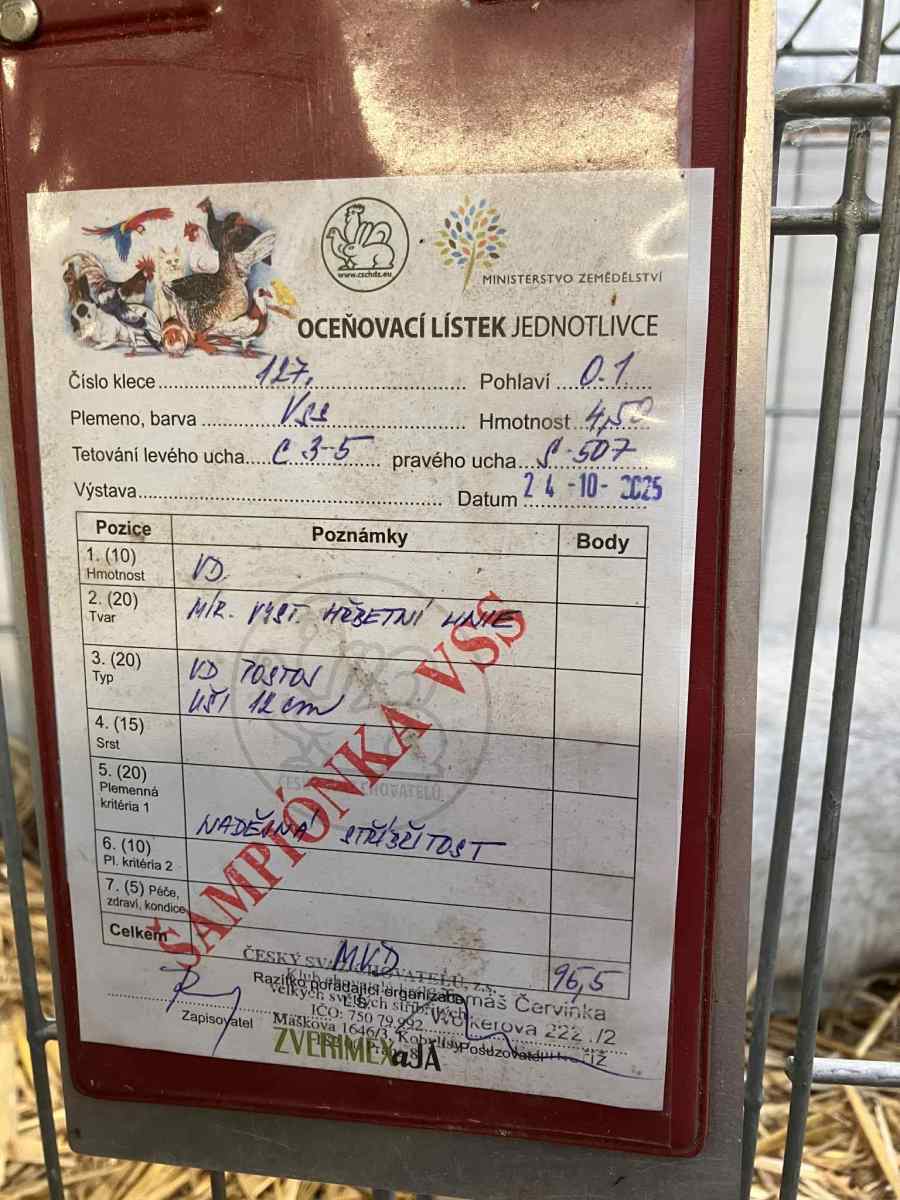 www.cschdz.eu
MINISTERSTVO ZEMĚDĚLSTVÍ
OCEŇOVACÍ LÍSTEK JEDNOTLIVCE
Číslo klece 127, Pohlaví 0.1
Plemeno, barva Vss Hmotnost 4,50
Tetování levého ucha C 3-5 pravého ucha S-507
Výstava Datum 24-10-2025
Pozice Poznámky Body
1. (10) Hmotnost VD
2. (20) Tvar MÍR. VYST. HŘBETNÍ LINIE
3. (20) Typ VD POSTOJ
UŠI 12 cm
4. (15) Srst
5. (20) Plemenná kritéria 1
NADĚJNÁ STŘÍBŘITOST
6. (10) Pl. kritéria 2
7. (5) Péče, zdraví, kondice
Celkem 96,5
ŠAMPIÓNKA VSS
ČESKÝ SVAZ CHOVATELŮ, z.s.
Razítko pořádající organizace
velkých světlých stříbřitých
Tomáš Červinka
IČO: 750 79 992
Wolkerova 222 /2
Zapisovatel
Máškova 1646/3, Kobylisy
Posuzovatel
ZVERIMEXaJÁ